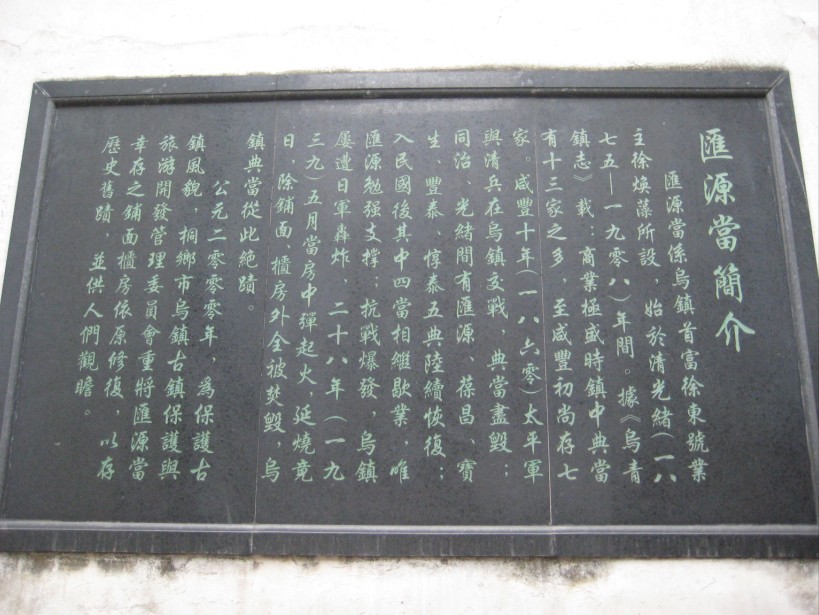 匯源當簡介
匯源當係烏鎮首富徐東號業
主徐煥藻所設，始於清光緒（一八
七五—一九零八）年間。據《烏青
鎮志》載：商業極盛時鎮中典當
有十三家之多，至咸豐初尚存七
家。咸豐十年（一八六零）太平軍
與清兵在烏鎮交戰，典當盡毀；
同治、光緒間有匯源、葆昌、寶
生、豐泰、惇泰五典陸續恢復；
入民國後其中四當相繼歇業，唯
匯源勉强支撐；抗戰爆發，烏鎮
屢遭日軍轟炸，二十八年（一九
三九）五月當房中彈起火，延燒竟
日，除鋪面、櫃房外全被焚毀，烏
鎮典當從此絶蹟。
公元二零零零年，爲保護古
鎮風貌，桐鄉市烏鎮古鎮保護與
旅游開發管理委員會重將匯源當
幸存之鋪面櫃房依原修復，以存
歷史舊蹟，並供人們觀瞻。